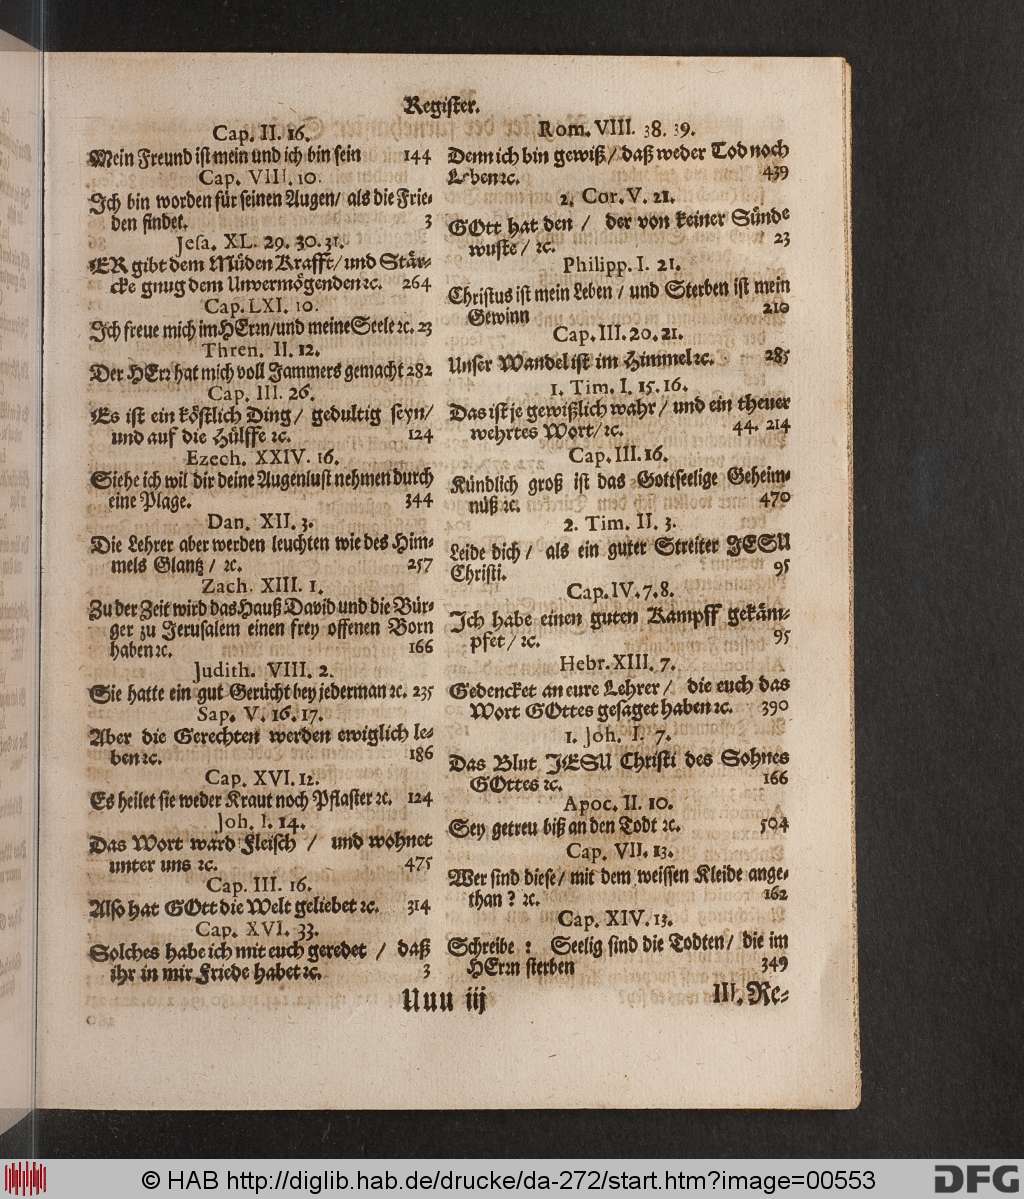 Register.
Cap. II. 16.
Mein Freund ist mein und ich bin sein 144
Cap. VIII. 10.
Ich bin worden für seinen Augen/ als die Frie-
den findet. 3
Jesa. XL. 29. 30. 31.
ER gibt dem Müden Krafft/ und Stär-
cke gnug dem Unvermögenden ꝛc. 264
Cap. LXI. 10.
Ich freue mich im HErrn/ und meine Seele ꝛc. 23
Thren. II. 12.
Der HErr hat mich voll Jammers gemacht 282
Cap. III. 26.
Es ist ein köstlich Ding/ gedultig seyn/
und auf die Hülffe ꝛc. 124
Ezech. XXIV. 16.
Siehe ich wil dir deine Augenlust nehmen durch
eine Plage. 344
Dan. XII. 3.
Die Lehrer aber werden leuchten wie des Him-
mels Glantz / ꝛc. 257
Zach. XIII. 1.
Zu der Zeit wird das Hauß David und die Bür-
ger zu Jerusalem einen frey offenen Born
haben ꝛc. 166
Judith. VIII. 2.
Sie hatte ein gut Gerücht bey jederman ꝛc. 235
Sap. V. 16. 17.
Aber die Gerechten werden ewiglich le-
ben ꝛc. 186
Cap. XVI. 12.
Es heilet sie weder Kraut noch Pflaster ꝛc. 124
Joh. I. 14.
Das Wort ward Fleisch / und wohnet
unter uns ꝛc. 475
Cap. III. 16.
Also hat GOtt die Welt geliebet ꝛc. 314
Cap. XVI. 33.
Solches habe ich mit euch geredet / daß
ihr in mir Friede habet ꝛc. 3
Rom. VIII. 38. 39.
Denn ich bin gewiß/ daß weder Tod noch
Leben ꝛc. 439
2. Cor. V. 21.
GOtt hat den / der von keiner Sünde
wuste / ꝛc. 23
Philipp. I. 21.
Christus ist mein Leben / und Sterben ist mein
Gewinn 210
Cap. III. 20. 21.
Unser Wandel ist im Himmel ꝛc. 285
1. Tim. I. 15. 16.
Das ist je gewißlich wahr / und ein theuer
wehrtes Wort/ ꝛc. 44. 214
Cap. III. 16.
Kündlich groß ist das Gottseelige Geheim-
nüß ꝛc. 470
2. Tim. II. 3.
Leide dich / als ein guter Streiter JESU
Christi. 95
Cap. IV. 7. 8.
Ich habe einen guten Kampff gekäm-
pfet / ꝛc. 95
Hebr. XIII. 7.
Gedencket an eure Lehrer / die euch das
Wort GOttes gesaget haben ꝛc. 390
1. Joh. I. 7.
Das Blut JESU Christi des Sohnes
GOttes ꝛc. 166
Apoc. II. 10.
Sey getreu biß an den Todt ꝛc. 504
Cap. VII. 13.
Wer sind diese/ mit dem weissen Kleide ange-
than ? ꝛc. 162
Cap. XIV. 13.
Schreibe : Seelig sind die Todten/ die im
HErrn sterben 349
Uuu iij
III. Re-
© HAB http://diglib.hab.de/drucke/da-272/start.htm?image=00553
DFG